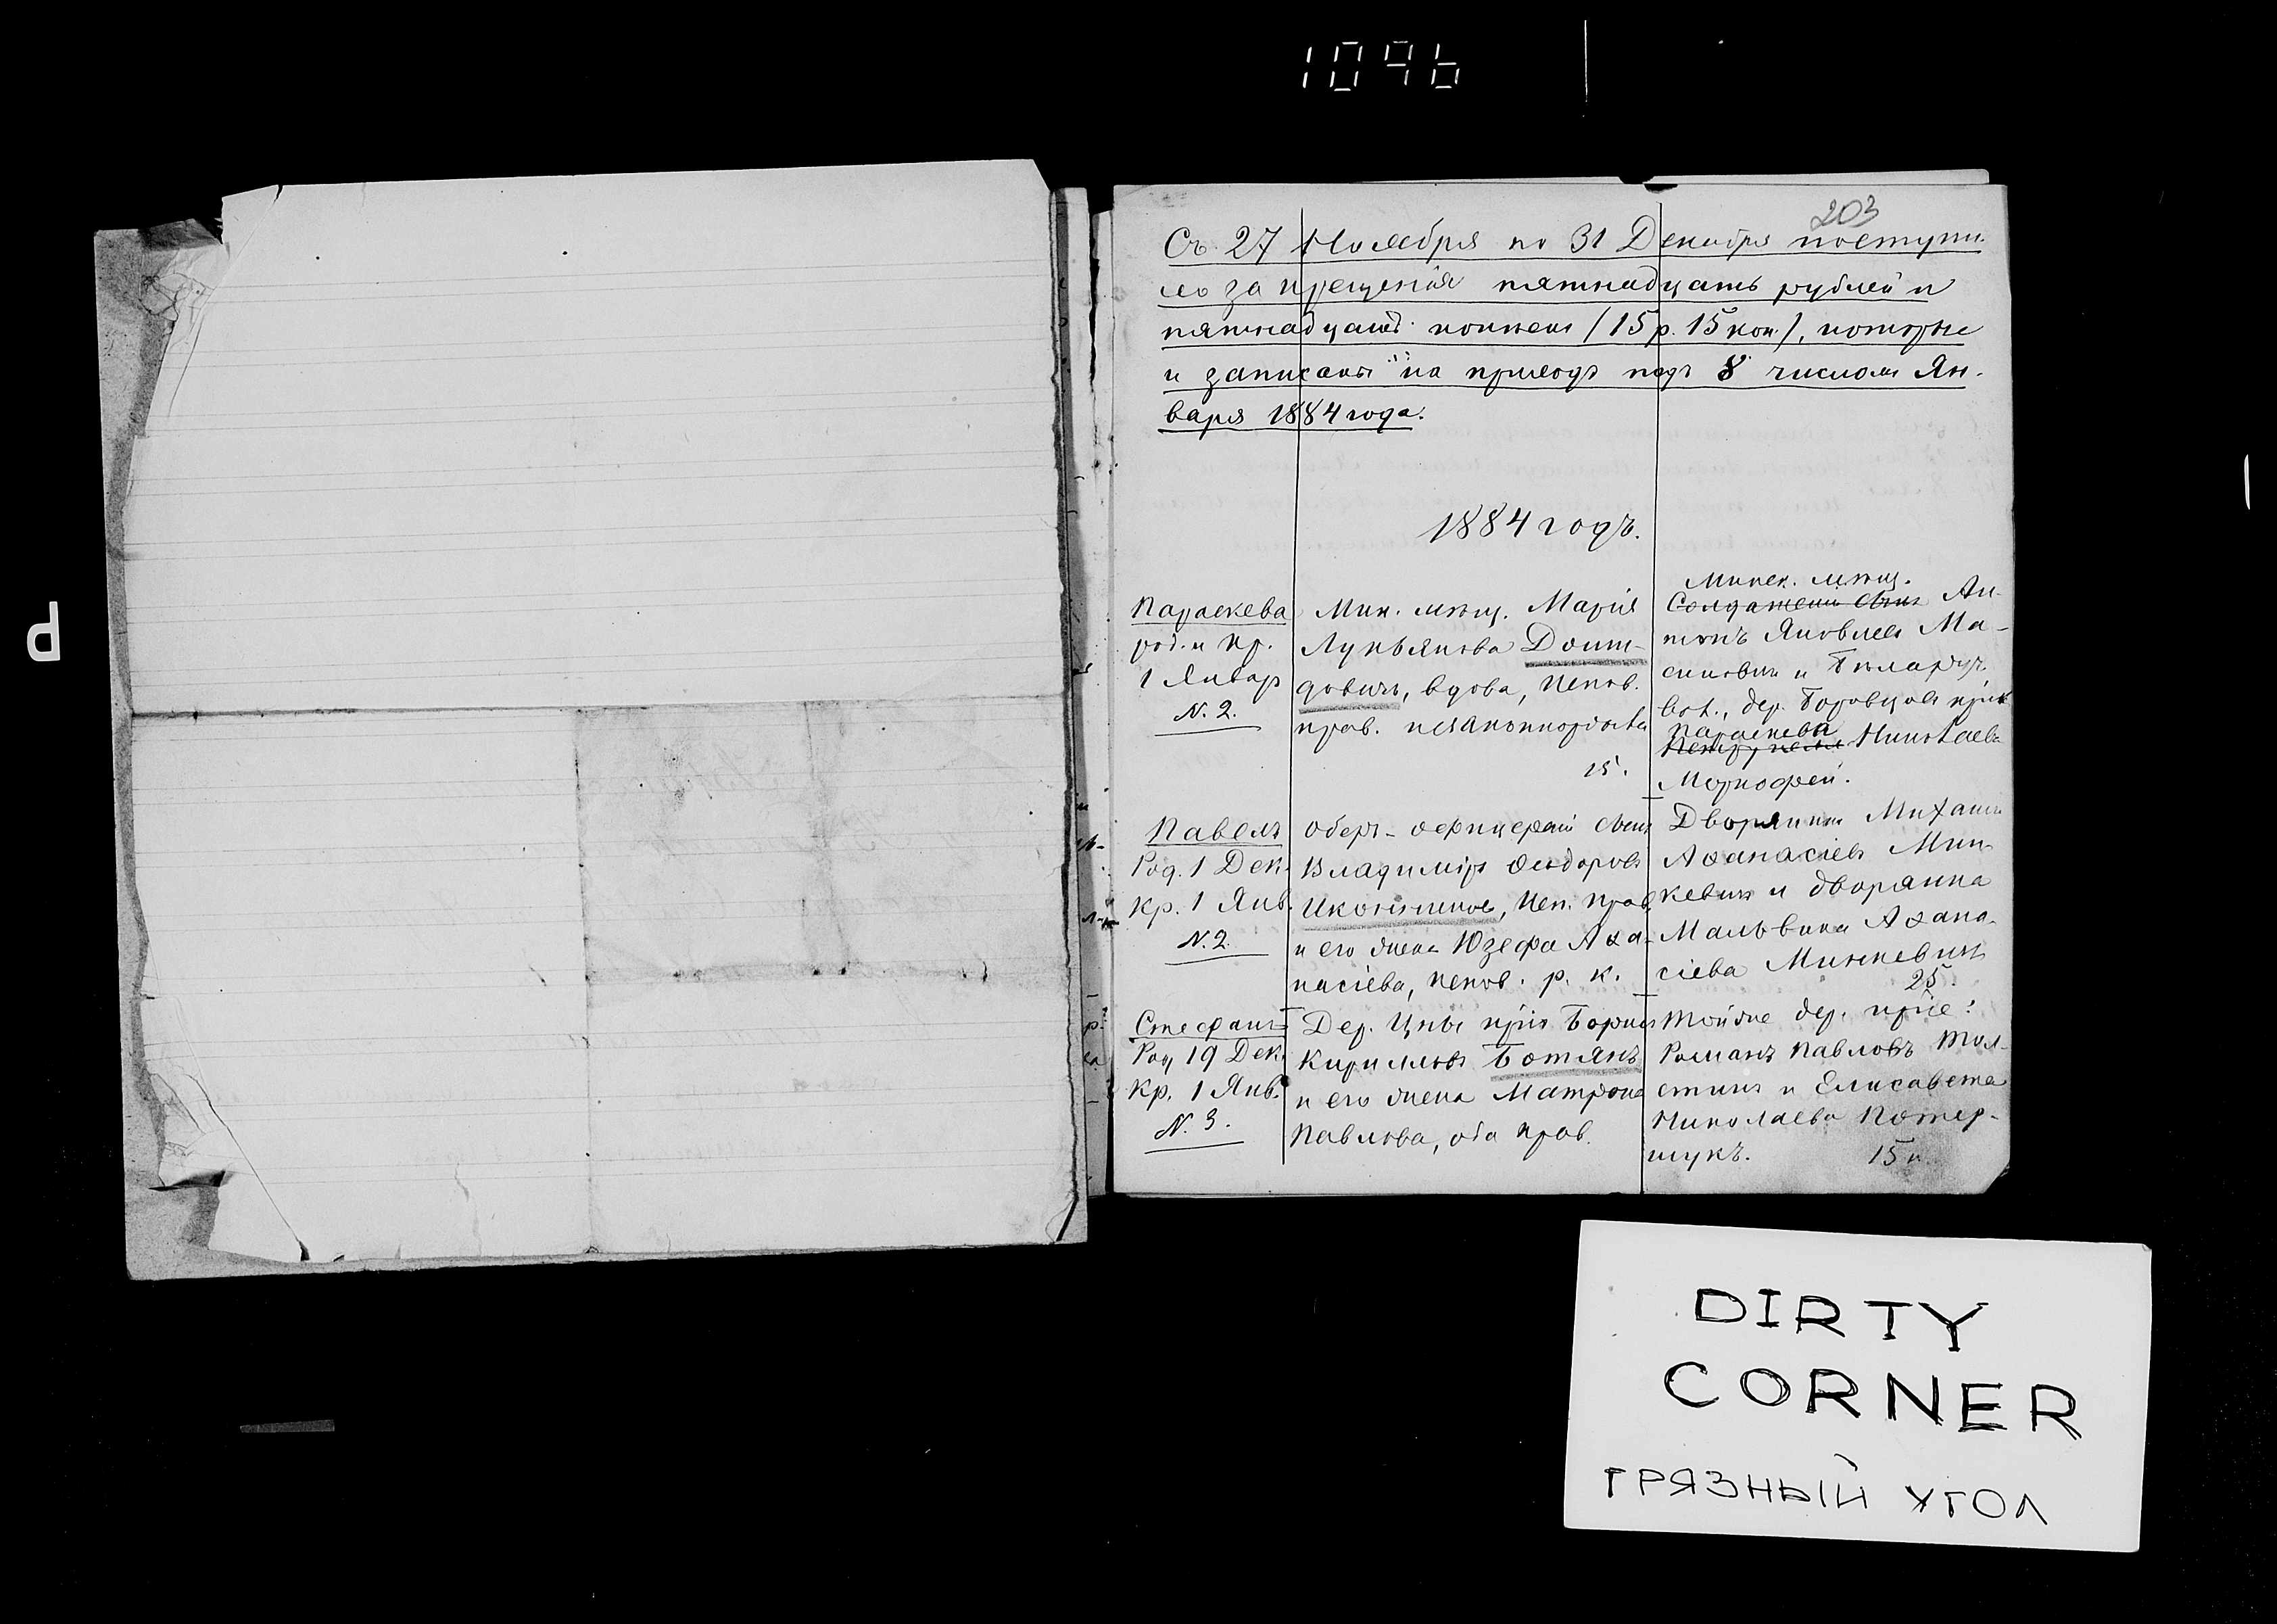 1096
P
203
Съ 27 Ноября по 31 Декабря поступи-
ло за крещенія пятнадцать рублей и
пятнадцать копѣекъ (15 р. 15 коп.), которые
и записаны на приходъ подъ 8 числомъ Ян-
варя 1884 года.
1884 годъ.
Параскева
род. и кр.
1 Январ
N. 2.
Мин. мѣщ. Марія
Лукьянова Домт-
довичъ, вдова, испов.
прав. незаконнорожд
15.
Минск. мѣщ.
Солдатскій сынъ Ан-
тонъ Яковлевъ Ма-
синовичъ и Бѣларуч.
вол., дер. Боровцовъ
Параскева
Николаева
Павелъ
Род. 1 Дек.
Кр. 1 Янв.
N. 2.
Оберъ-офицерскій сынъ
Владиміръ Ѳеодоровъ
Икотинновъ, исп. прав.
и его жена Юзефа Аѳа-
насіева, испов. р. к.
Дворянинъ Михаилъ
Аѳанасіевъ Мин-
кевичъ и дворянка
Мальвина Аѳана-
сіева Минкевичъ
25.
Стефанъ
Род. 19 Дек.
Кр. 1 Янв.
N. 3.
Дер. Цны кр-нъ Борисъ
Кирилловъ Ботянъ
и его жена Матрона
Павлова, оба прав.
Тойже дер. кр-не:
Романъ Павловъ Тол-
стикъ и Елисавета
Николаева Потер-
шукъ.
15 к.
DIRTY
CORNER
ГРЯЗНЫЙ УГОЛ